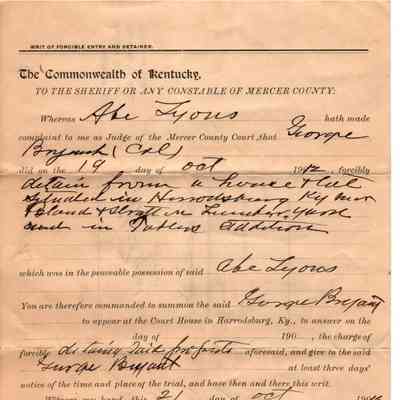 WRIT OF FORCIBLE ENTRY AND DETAINER.
The Commonwealth of Kentucky,
TO THE SHERIFF OR ANY CONSTABLE OF MERCER COUNTY:
Whereas Abe Lyons hath made
complaint to me as Judge of the Mercer County Court, that George
Bryant (Col)
did on the 19 day of Oct 19 forcibly
detain from a house & lot
situated in Harrodsburg Ky near
Lumber yard
and in addition
which was in the peaceable possession of said Abe Lyons
You are therefore commanded to summon the said George Bryant
to appear at the Court House in Harrodsburg, Ky., to answer on the
day of 190 , the charge of
forcible detainer said aforesaid, and give to the said
George Bryant at least three days'
notice of the time and place of the trial, and have then and there this writ.
Witness my hand this 21 day of Oct 19